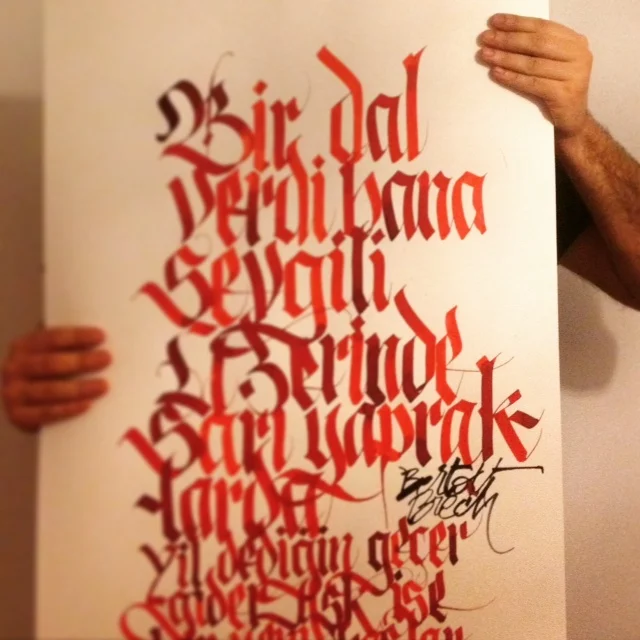 Bir dal
verdi bana
sevgili,
Üzerinde
sarı yaprak-
larda
Bertolt
Brecht
yıl dediğin geçer
gider aşk ise